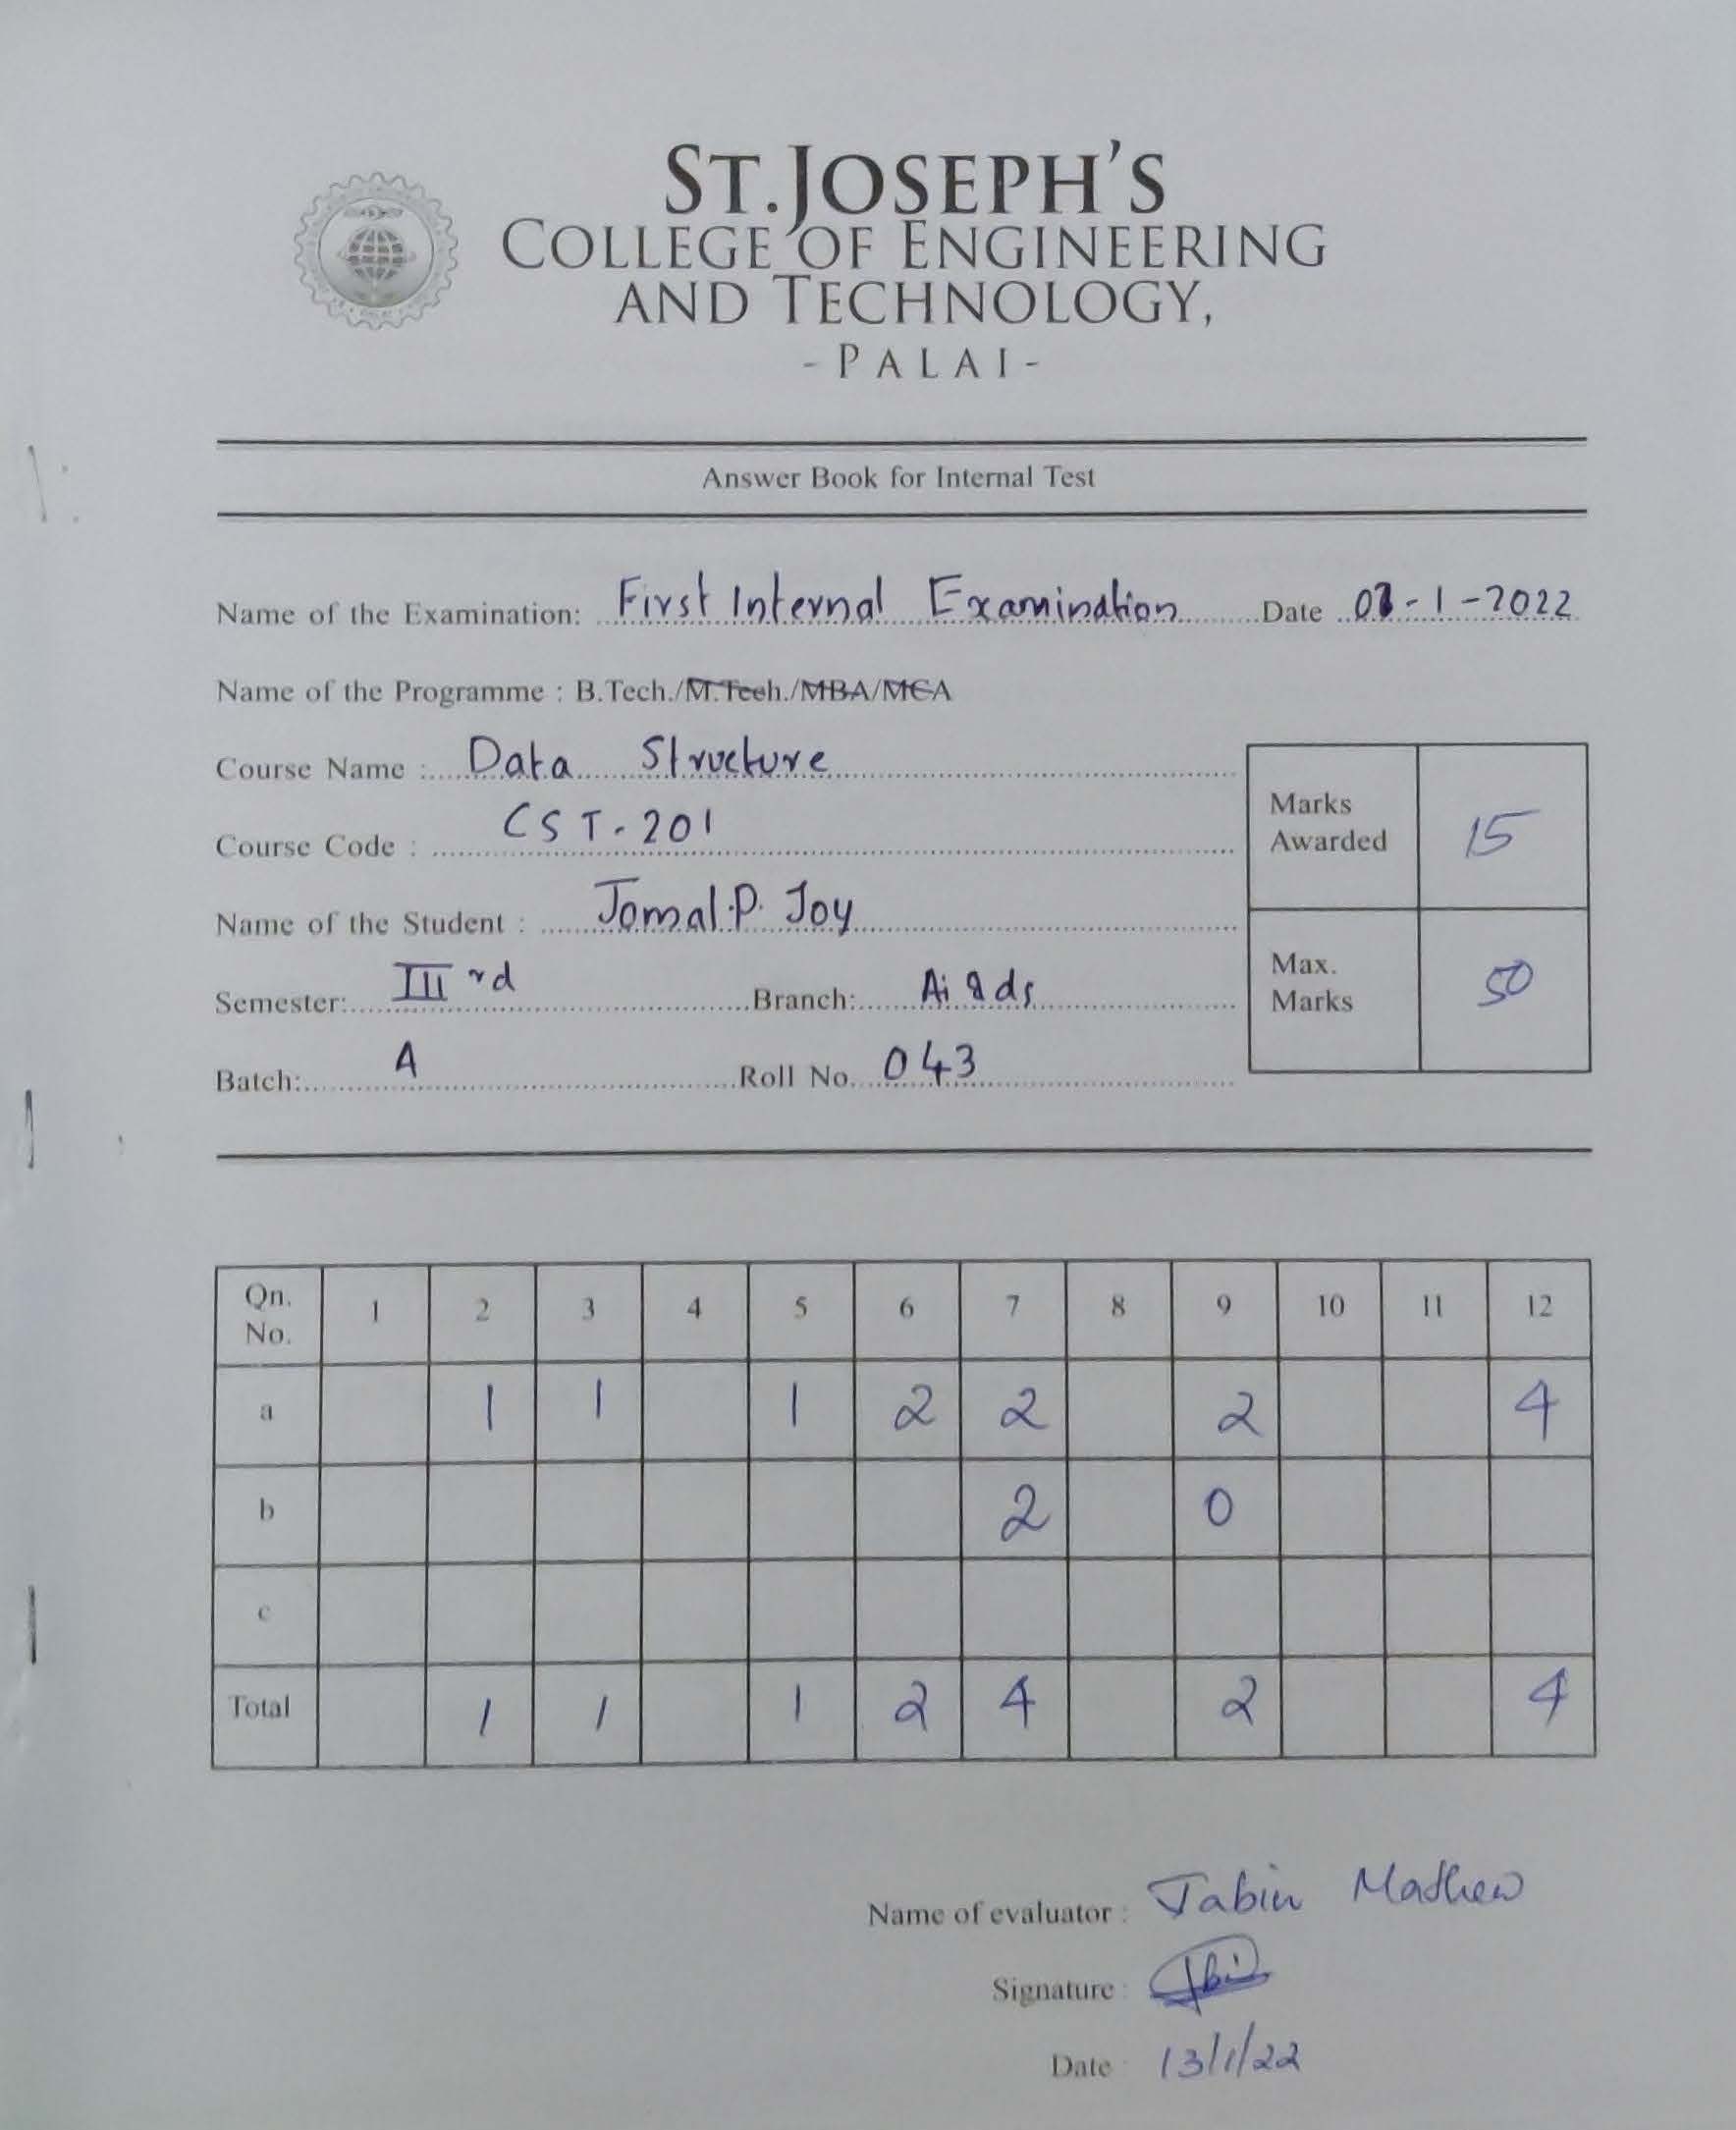 ST.JOSEPH'S
COLLEGE OF ENGINEERING
AND TECHNOLOGY,
-PALAI-
Answer Book for Internal Test
Name of the Examination: First Internal Examination Date -1-2022
Name of the Programme : B.Tech./M.Tech./MBA/MCA
Course Name : Data Structure
Course Code : CST-201
Name of the Student : Jomal.P. Joy
Semester: III rd Branch: Ai & ds
Batch: A Roll No. 043
Marks Awarded 15
Max. Marks 50
Qn. No. 1 2 3 4 5 6 7 8 9 10 11 12
a 1 1 1 2 2 2 4
b 2 0
c
Total 1 1 1 2 4 2 4
Name of evaluator : Jabin Mathew
Signature :
Date : 13/1/22